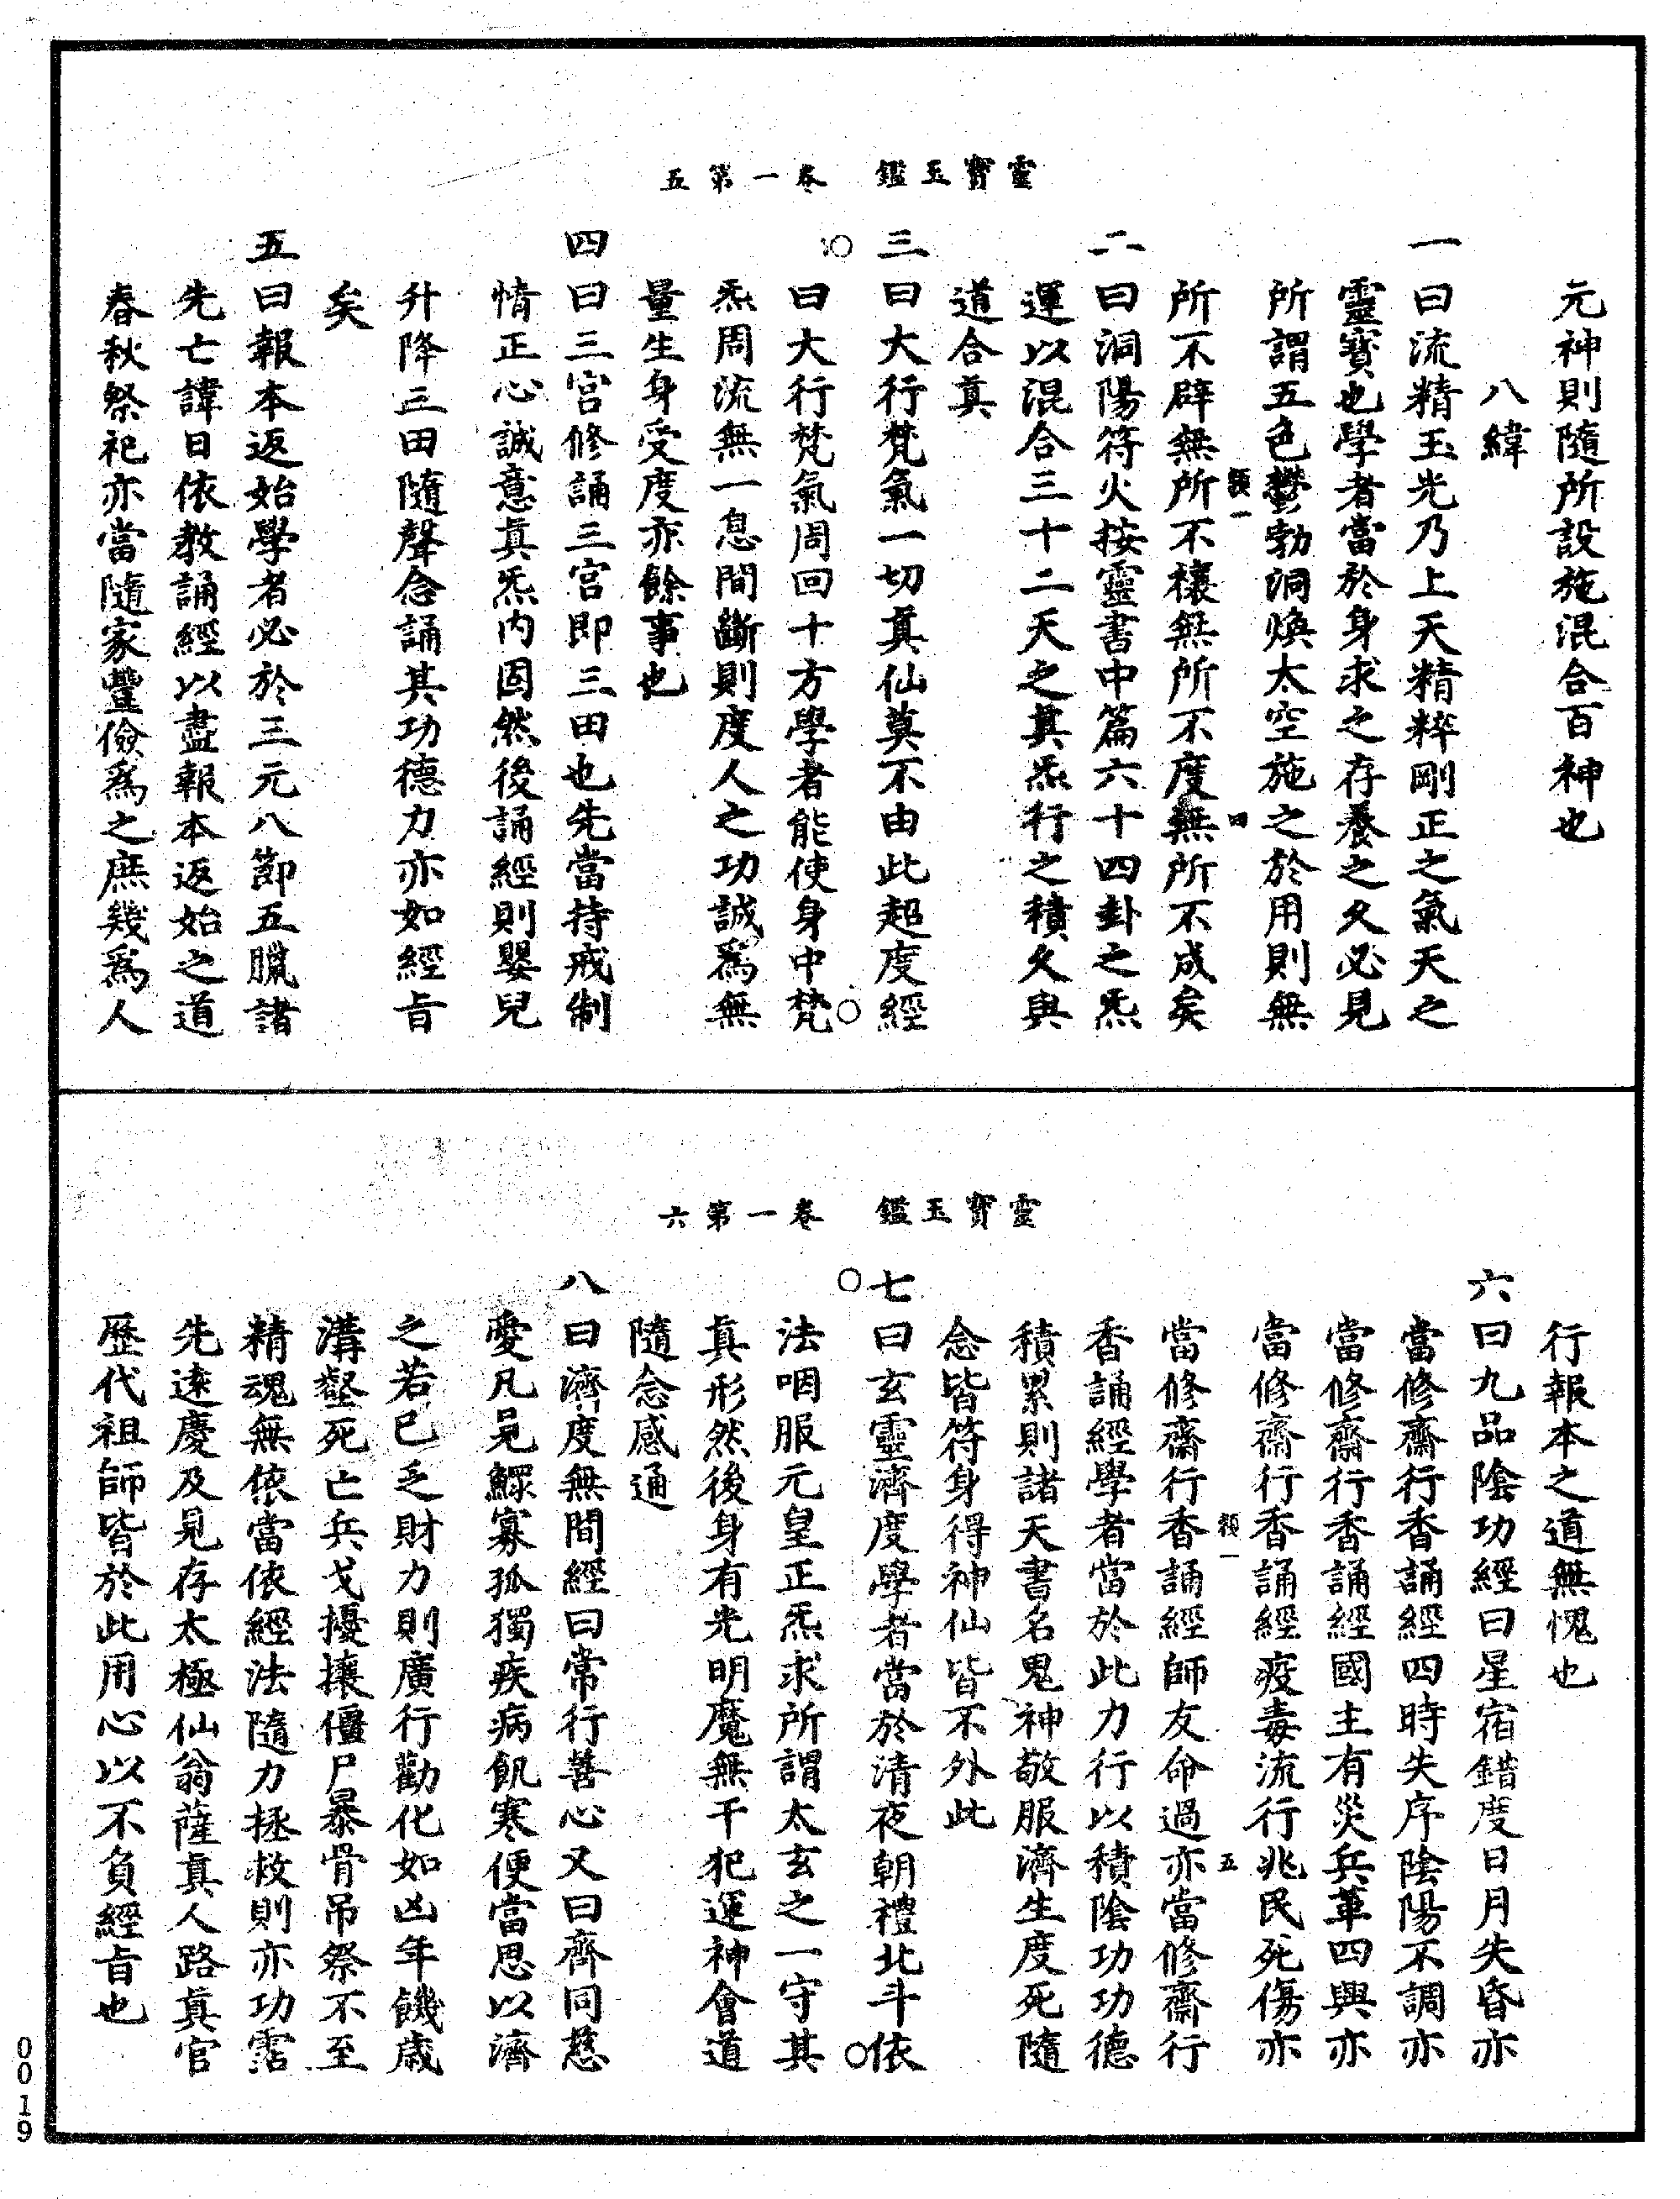 靈寶玉鑑　卷一第五
元神則隨所設施混合百神也
八緯
一曰流精玉光乃上天精粹剛正之氣天之
靈寶也學者當於身求之存養之久必見
所謂五色鬱勃洞煥太空施之於用則無
所不辟無所不禳無所不度無所不成矣
二曰洞陽符火按靈書中篇六十四卦之炁
運以混合三十二天之真炁行之積久與
道合真
三曰大行梵氣一切真仙莫不由此超度經
曰大行梵氣周回十方學者能使身中梵
炁周流無一息間斷則度人之功誠爲無
量生身受度亦餘事也
四曰三宮修誦三宮即三田也先當持戒制
情正心誠意真炁内固然後誦經則嬰兒
升降三田隨聲念誦其功德力亦如經旨
矣
五曰報本返始學者必於三元八節五臘諸
先亡諱日依教誦經以盡報本返始之道
春秋祭祀亦當隨家豐儉爲之庶幾爲人
靈寶玉鑑　卷一第六
行報本之道無愧也
六曰九品陰功經曰星宿錯度日月失昏亦
當修齋行香誦經四時失序陰陽不調亦
當修齋行香誦經國主有災兵革四興亦
當修齋行香誦經疫毒流行兆民死傷亦
當修齋行香誦經師友命過亦當修齋行
香誦經學者當於此力行以積陰功功德
積累則諸天書名鬼神敬服濟生度死隨
念皆符身得神仙皆不外此
七曰玄靈濟度學者當於清夜朝禮北斗依
法咽服元皇正炁求所謂太玄之一守其
真形然後身有光明魔無干犯運神會道
隨念感通
八曰濟度無間經曰常行善心又曰齊同慈
愛凡見鰥寡孤獨疾病飢寒便當思以濟
之若己乏財力則廣行勸化如凶年饑歲
溝壑死亡兵戈擾攘僵尸暴骨吊祭不至
精魂無依當依經法隨力拯救則亦功霑
先遠慶及見存太極仙翁薩真人路真官
歷代祖師皆於此用心以不負經旨也
0019